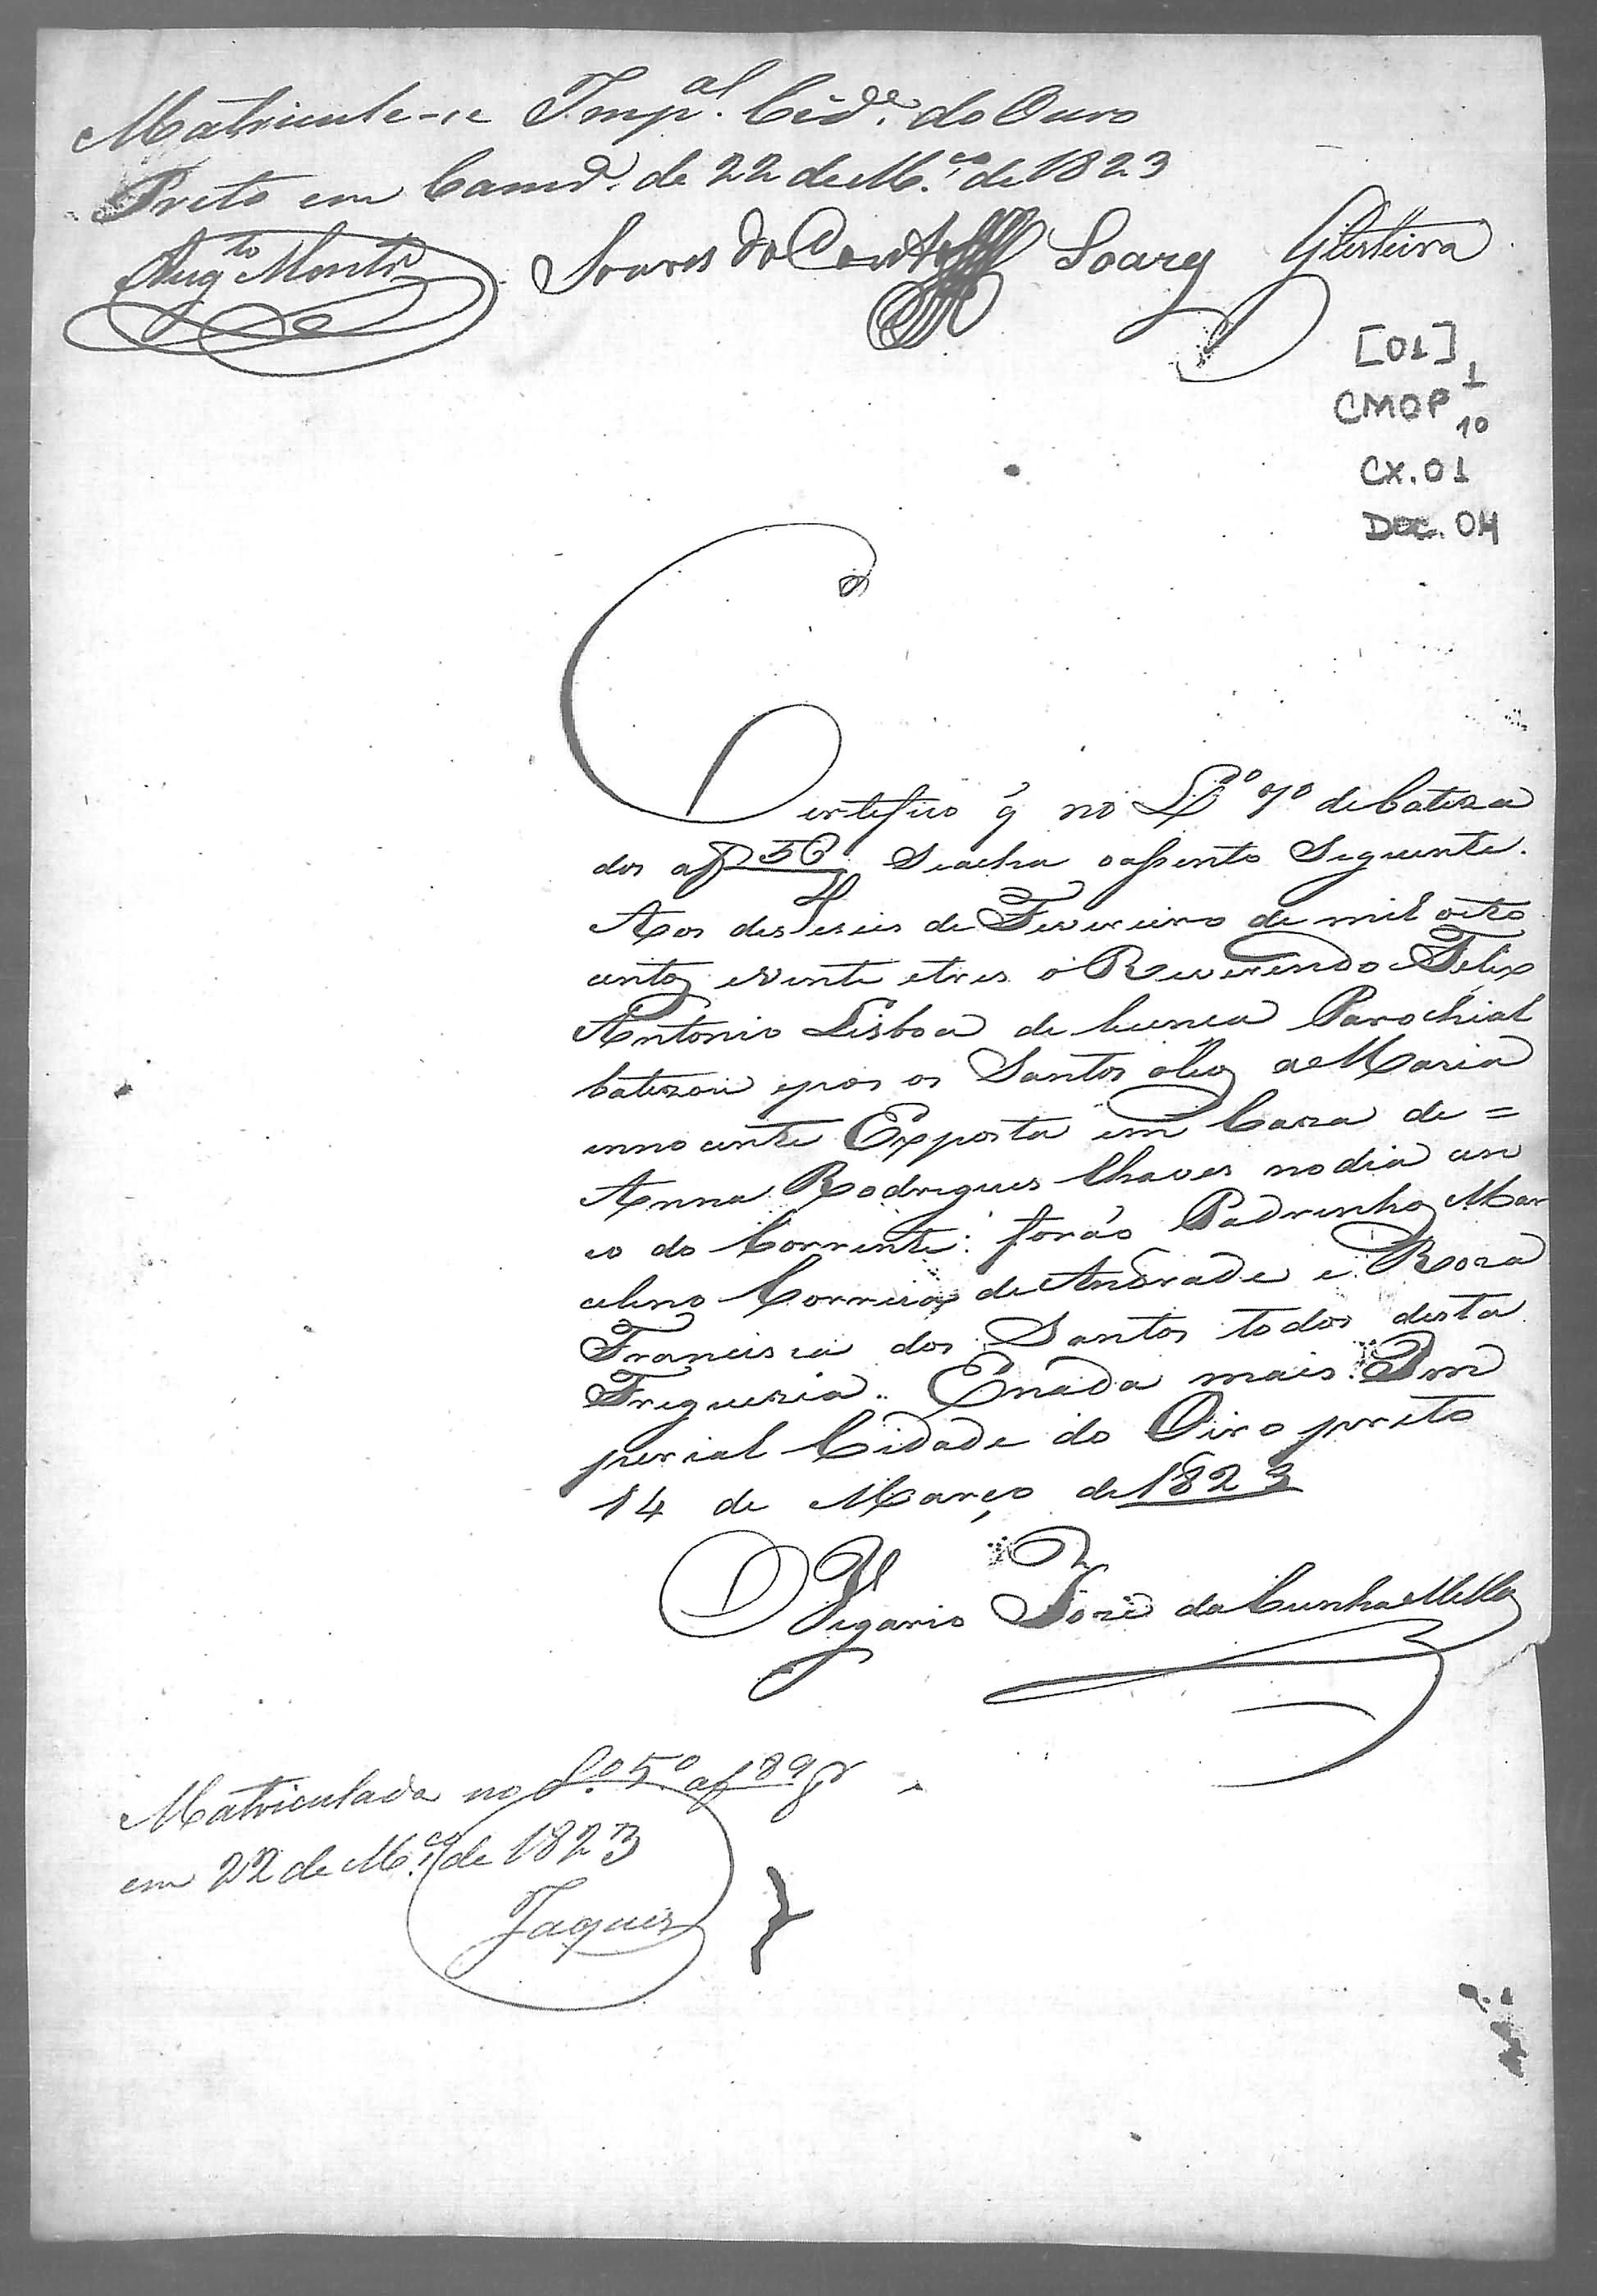 Matricule-se Imp.al Cid.e do Ouro
Preto em Camr.a de 22 de M.ço de 1823
Aug.to Montr.o Soares do Couto Soares
[01]
CMOP 1
10
CX.01
DOC. 04
Certefico q̃ no L.o 7o de Bateza
dos a f 56 Seacha oassento Seguinte.
Aos deseseis de Fevereiro de mil oito
centos evinte etres o Reverendo Felix
Antonio Lisboa de licença Parochial
batezou epos os Santos oleos a Maria
innocente Exposta em Caza de =
Anna Rodrigues Chaves nodia cin
co do Corrente: forão Padrinhos Mar
celino Correia de Andrade e Roza
Francisca dos Santos todos desta
Freguezia. Enada mais. Im
perial Cidade do Oiro preto
14 de Março de 1823
O Vigario José da Cunha Mello
Matriculada no L.o 5o a f 89
em 22 de M.ço de 1823
Jaques